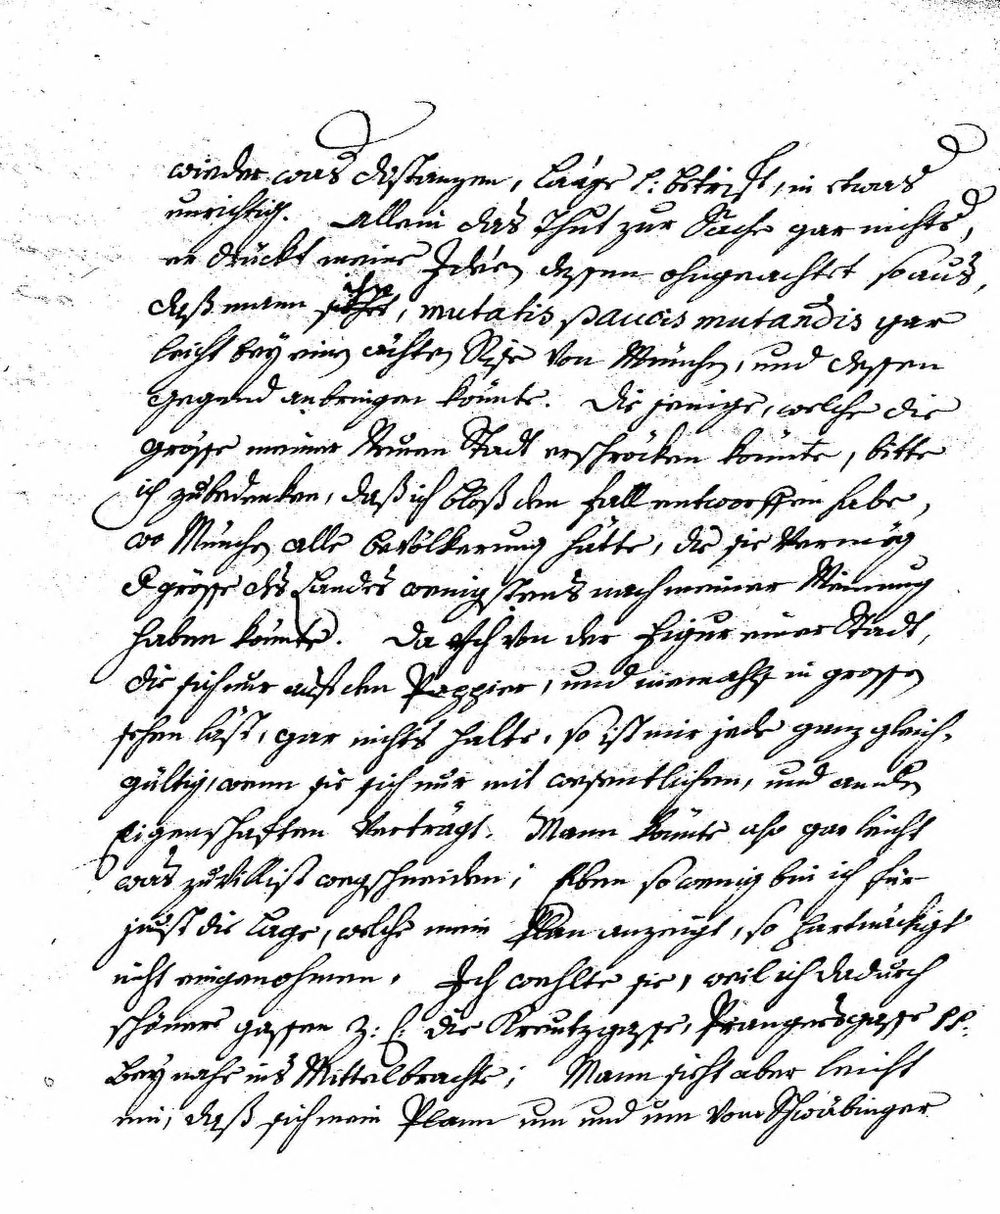 wieder was Distanzen, Läage p: betrift, in etwas
unrichtig. Allein das Thut zur Sache gar nichts,
er drückt meine Ideen dessen ohngeachtet so aus,
daß mann sie, mutatis paucis mutandis gar
leicht bey einem ächten Riße von München, und dessen
Gegend anbringen könnte. Die jenige, welche die
grösse meiner Neuen Stadt erschröcken könnte, bitte
ich zubedenken, daß ich bloß den Fall entworffen habe,
wo München alle bevölkerung hätte, die sie Vermög
d grösse des Landes wenigstens nach meiner Meinung
haben könnte. Da ich von der Figur einer Stadt,
die sich nur auf dem Pappier, und niemahls in grossen
sehen läst, gar nichts halte, so ist mir jede ganz gleich-
gültig, wenn sie sich nur mit wesentlichen, und andern
Eigenschaften Verträgt. Mann könnte also gar leicht
was zuvill ist wegschneiden; Eben so wenig bin ich für
just die Lage, welche mein Plan anzeigt, so hartnäckigt
nicht eingenohmen. Ich wehlte sie, weil ich dadurch
schönere gassen z: E: die Kreutzgasse, Prangersgasse pp.
Bey nahe ins Mittel brachte; Mann sieht aber leicht
ein, daß sich mein Plann um und um vom Schwäbinger